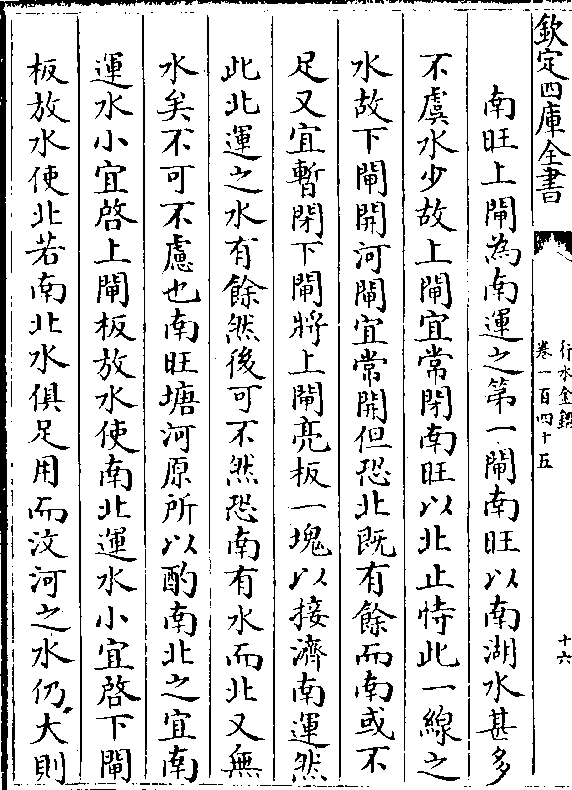 欽定四庫全書
行水金鑑
卷一百四十五
十六
南旺上閘為南運之第一閘南旺以南湖水甚多
不虞水少故上閘宜常閉南旺以北止恃此一線之
水故下閘開河閘宜常開但恐北既有餘而南或不
足又宜暫閉下閘將上閘亮板一塊以接濟南運然
此北運之水有餘然後可不然恐南有水而北又無
水矣不可不慮也南旺塘河原所以酌南北之宜南
運水小宜啓上閘板放水使南北運水小宜啓下閘
板放水使北若南北水俱足用而汶河之水仍大則